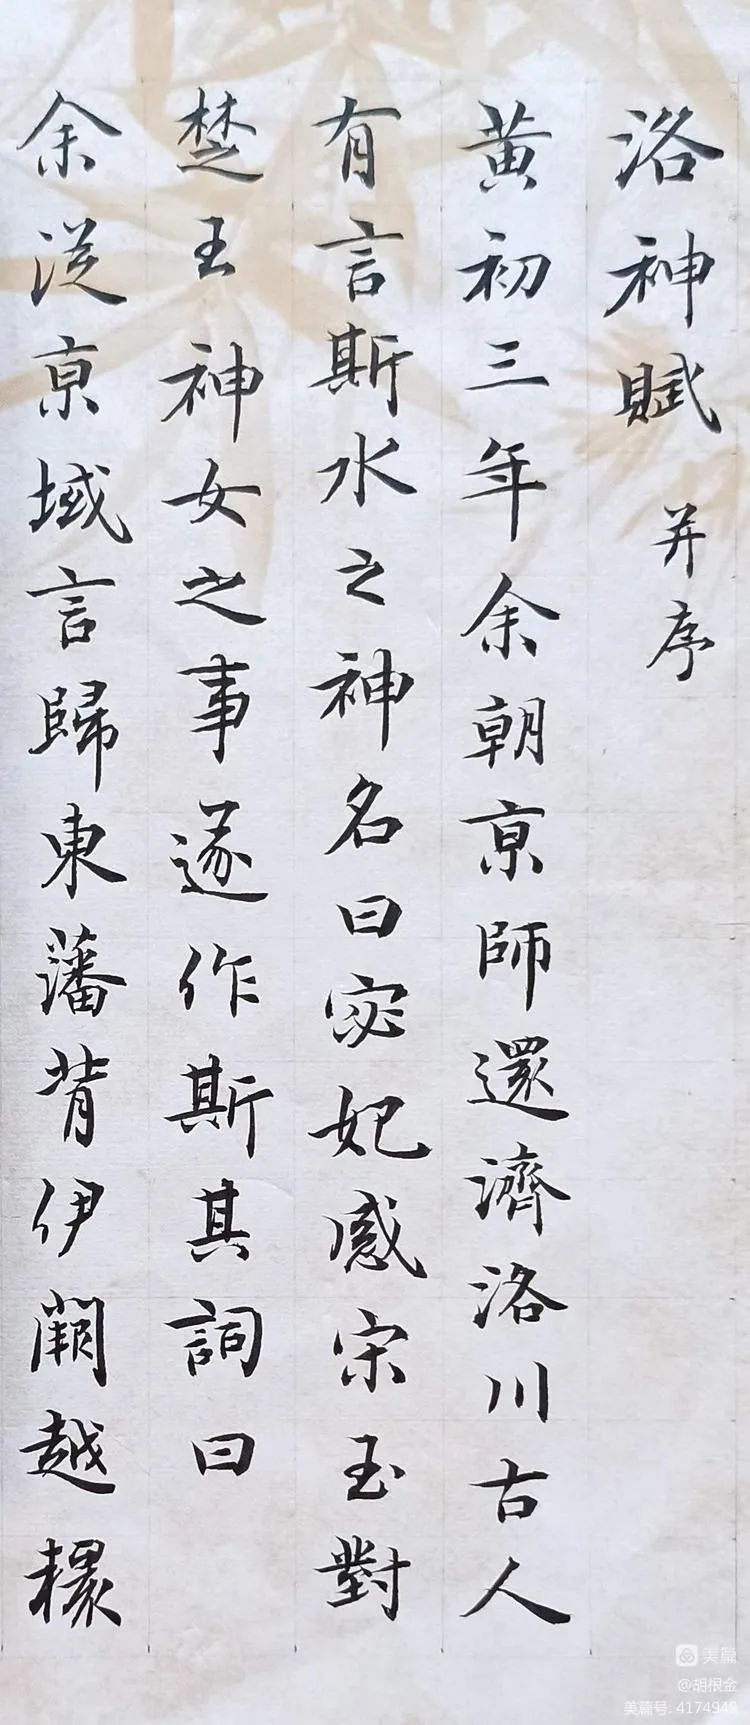 洛神賦 并序
黄初三年余朝京師還濟洛川古人
有言斯水之神名曰宓妃感宋玉對
楚王神女之事遂作斯其詞曰
余從京域言歸東藩背伊闕越轘
美篇
@胡根金
美篇号: 4174945